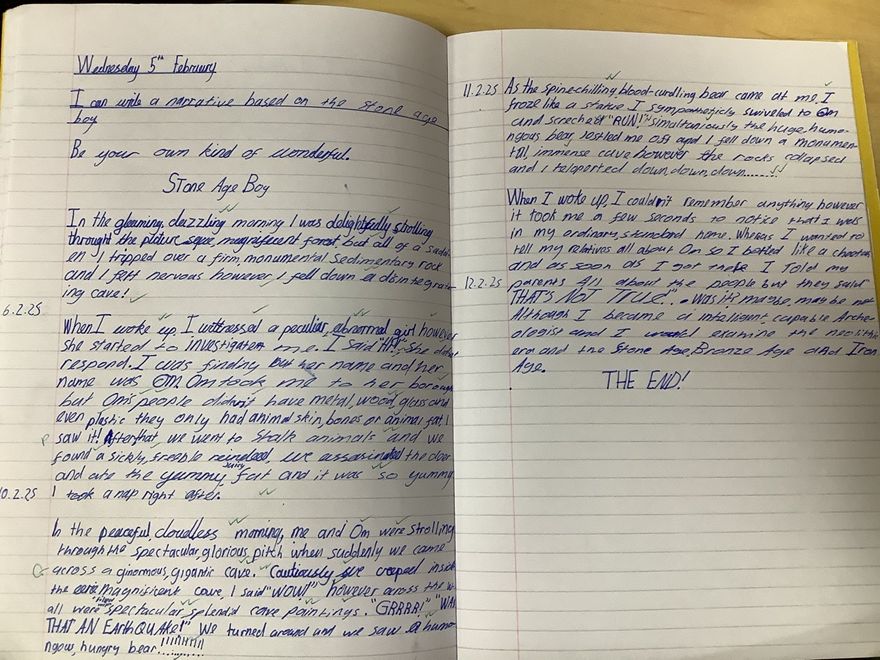 Wednesday 5th February
I can write a narrative based on the stone age
boy
Be your own kind of wonderful.
Stone Age Boy
In the gleaming, dazzling morning I was delightfully strolling
throught the picture sque, magnificent forest but all of a sudd-
en I tripped over a firm, monumental sedimentary rock
and I felt nervous however, I fell down a disintegrat-
ing cave!
6.2.25
When I woke up, I wittnessed a peculiar, abnormal girl however
she started to investigate me. I said "HI!", She didnt
respond. I was finding her name and her
name was OM. Om took me to her borough
but Om's people didn't have metal, wood, glass and
even plastic they only had animal skin, bones or animal fat I
saw it! After that, we went to stalk animals and we
found a sickly, freable reindeed we assasinated the deer
and ate the yummy, juicy fat and it was so yummy
I took a nap right after.
10.2.25
In the peaceful, cloudless morning, me and Om were strolling
through the spectacular, glorious, pitch when suddenly we came
across a ginormous, gigantic cave. Cautiously we creeped inside
the magnificent cave, I said "WOW!" however across the w-
all were spectacular, splendid cave paintings. GRRRR!" "WAS
THAT AN EarthQUAKE!" We turned around and we saw a humo-
ngow, hungry bear
11.2.25 As the spine-chilling, blood-curdling bear came at me, I
froze like a statue I sympatheticly swiveled to Om
and screched "RUN!" simultaniously the huge, humo-
ngous bear me off and I fell down a monumen-
tal, immense cave however the rocks colapsed
and I teleported down, down, down......!!
When I woke up, I couldn't remember anything however
it took me a few seconds to notice that I was
in my ordinary, standard home. Whereas I wanted to
tell my relatives all about Om so I bolted like a cheetah
and as soon as I got there I told my
12.2.25 parents all about the people but they said
"THAT'S NOT TRUE". Was it? maybe, maybe not
Although I became a intelligent, capable Arche-
ologist and I would examine the neolithic
era and the Stone Age, Bronze Age and Iron
Age.
THE END!